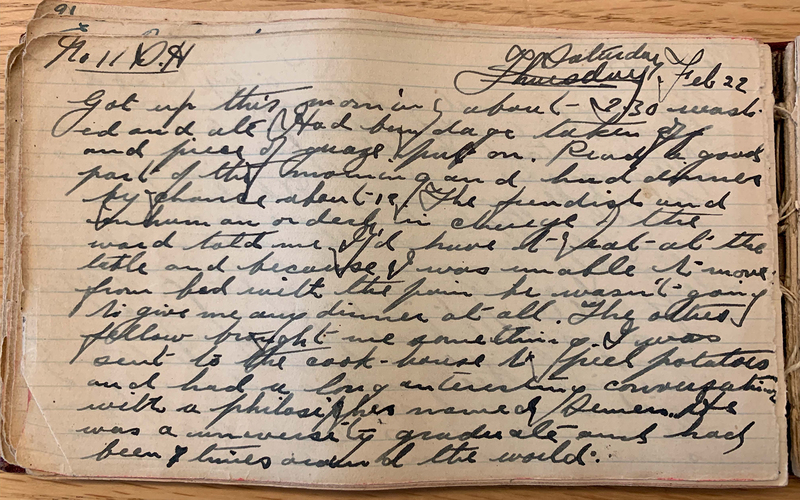 91
No 11 S.H
Saturday
Thursday, Feb 22
Got up this morning about 2.30 wash-
ed and ate. Had bandage taken off
and piece of guaze put on. Read a good
part of the morning and had dinner
by chance about 12. The fiendish and
inhuman orderly in charge of the
ward told me I'd have to eat at the
table and because I was unable to move
from bed with the pain he wasn't going
to give me any dinner at all. The other
fellow brought me something. I was
sent to the cook-house to peel potatoes
and had a long interesting conversation
with a philosipher named. He
was a university graduate and had
been 7 times around the world.